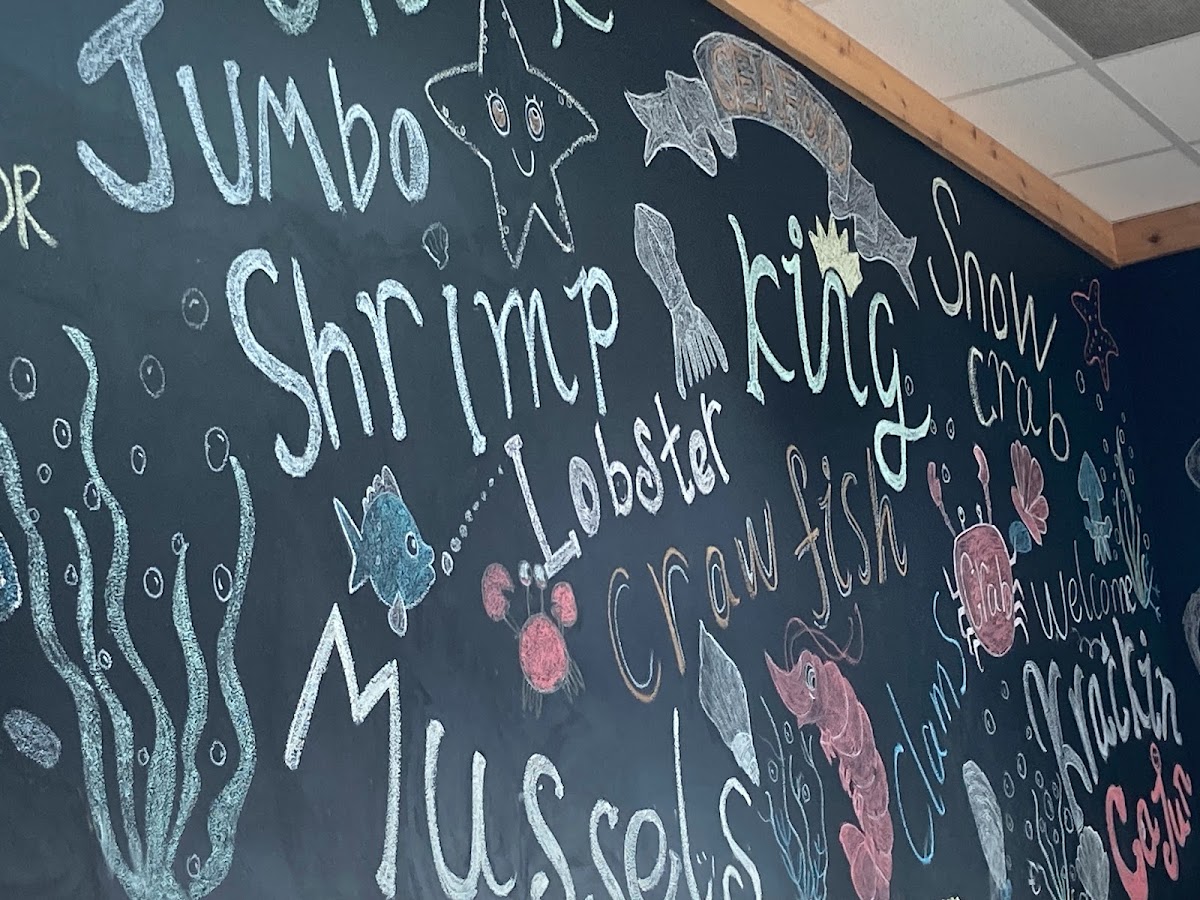 OR
Jumbo
Shrimp
SEAFOOD
king
Snow
crab
Lobster
crawfish
Crab
Mussels
clams
Welcome
Krackin
Cajun